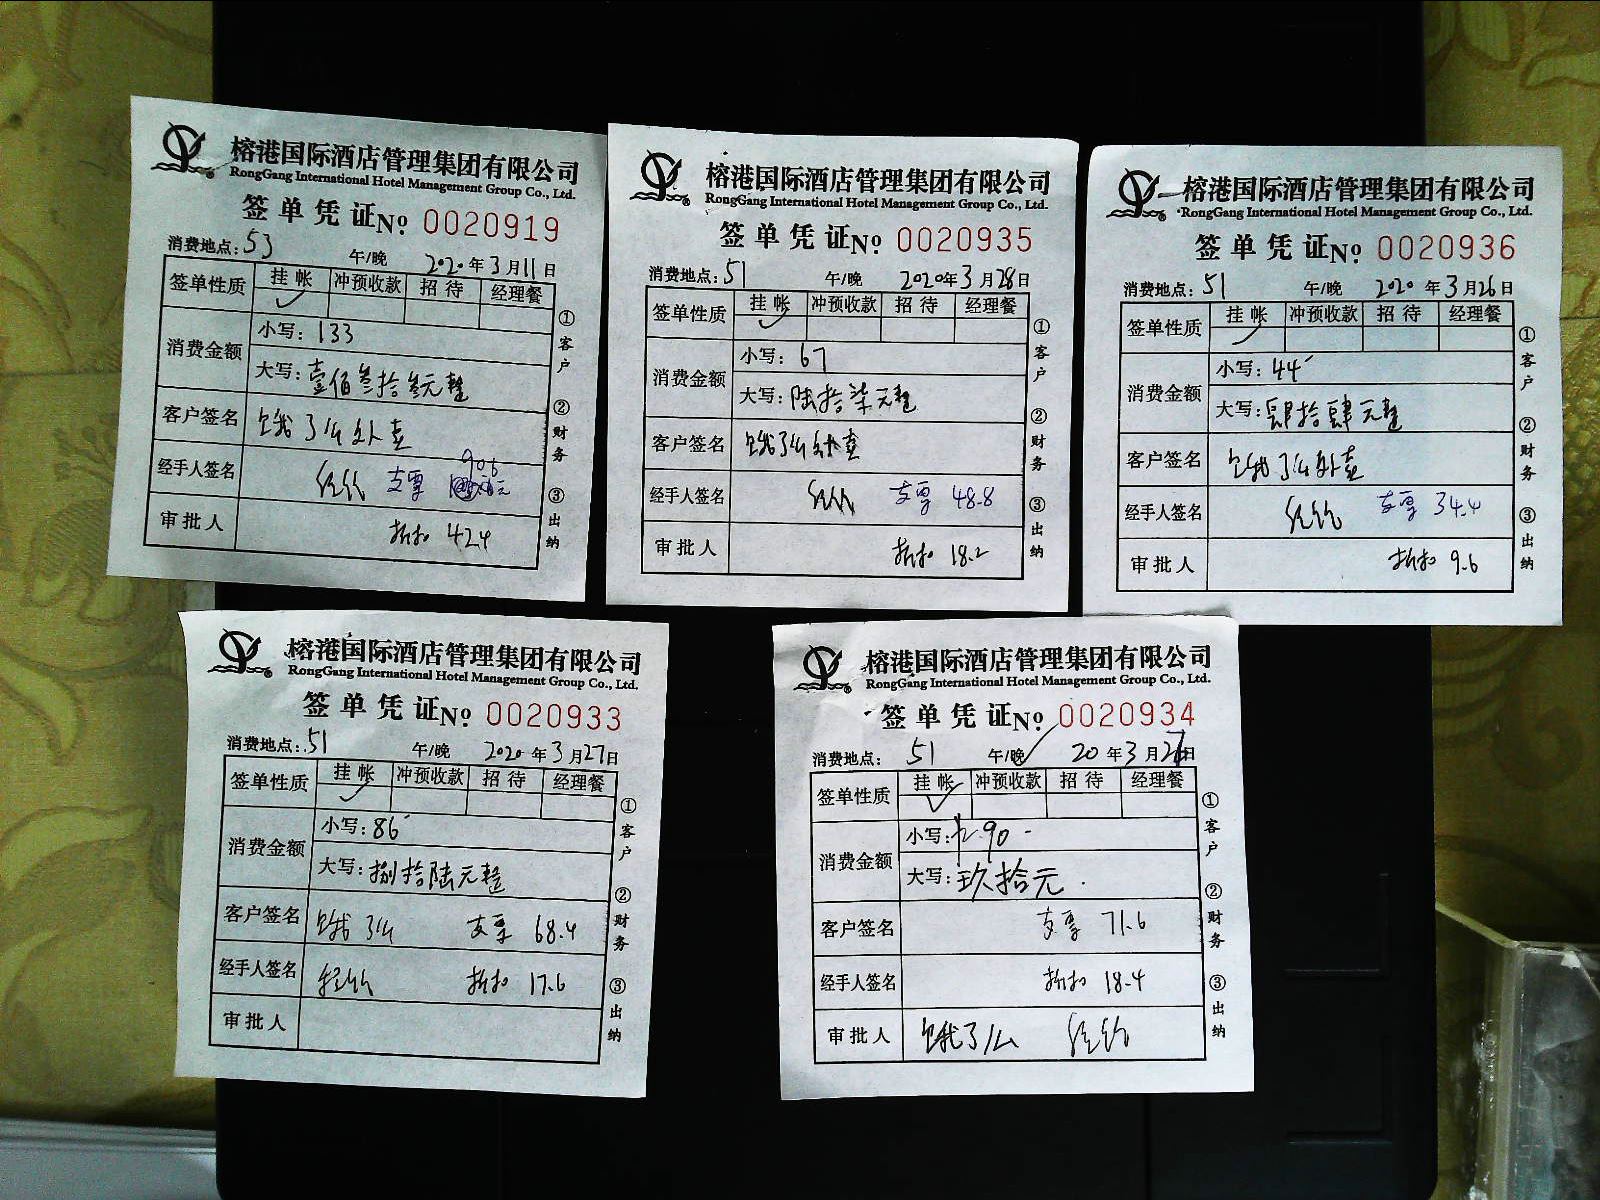 榕港国际酒店管理集团有限公司
RongGang International Hotel Management Group Co., Ltd.
签单凭证 No. 0020919
消费地点: 53 午/晚 2020年3月11日
签单性质 挂帐 冲预收款 招待 经理餐
✓
消费金额 小写: 133
大写: 壹佰叁拾叁元整
客户签名 饿了么外卖
经手人签名 支票 90.6
审批人 折扣 42.4
①客户 ②财务 ③出纳
榕港国际酒店管理集团有限公司
RongGang International Hotel Management Group Co., Ltd.
签单凭证 No. 0020935
消费地点: 51 午/晚 2020年3月28日
签单性质 挂帐 冲预收款 招待 经理餐
✓
消费金额 小写: 67
大写: 陆拾柒元整
客户签名 饿了么外卖
经手人签名 支票 48.8
审批人 折扣 18.2
①客户 ②财务 ③出纳
榕港国际酒店管理集团有限公司
RongGang International Hotel Management Group Co., Ltd.
签单凭证 No. 0020936
消费地点: 51 午/晚 2020年3月26日
签单性质 挂帐 冲预收款 招待 经理餐
✓
消费金额 小写: 44
大写: 肆拾肆元整
客户签名 饿了么外卖
经手人签名 支票 34.4
审批人 折扣 9.6
①客户 ②财务 ③出纳
榕港国际酒店管理集团有限公司
RongGang International Hotel Management Group Co., Ltd.
签单凭证 No. 0020933
消费地点: 51 午/晚 2020年3月27日
签单性质 挂帐 冲预收款 招待 经理餐
✓
消费金额 小写: 86
大写: 捌拾陆元整
客户签名 饿了么 支票 68.4
经手人签名 折扣 17.6
审批人
①客户 ②财务 ③出纳
榕港国际酒店管理集团有限公司
RongGang International Hotel Management Group Co., Ltd.
签单凭证 No. 0020934
消费地点: 51 午/晚 ✓ 20年3月27日
签单性质 挂帐 冲预收款 招待 经理餐
✓
消费金额 小写: 90-
大写: 玖拾元.
客户签名 支票 71.6
经手人签名 折扣 18.4
审批人 饿了么
①客户 ②财务 ③出纳